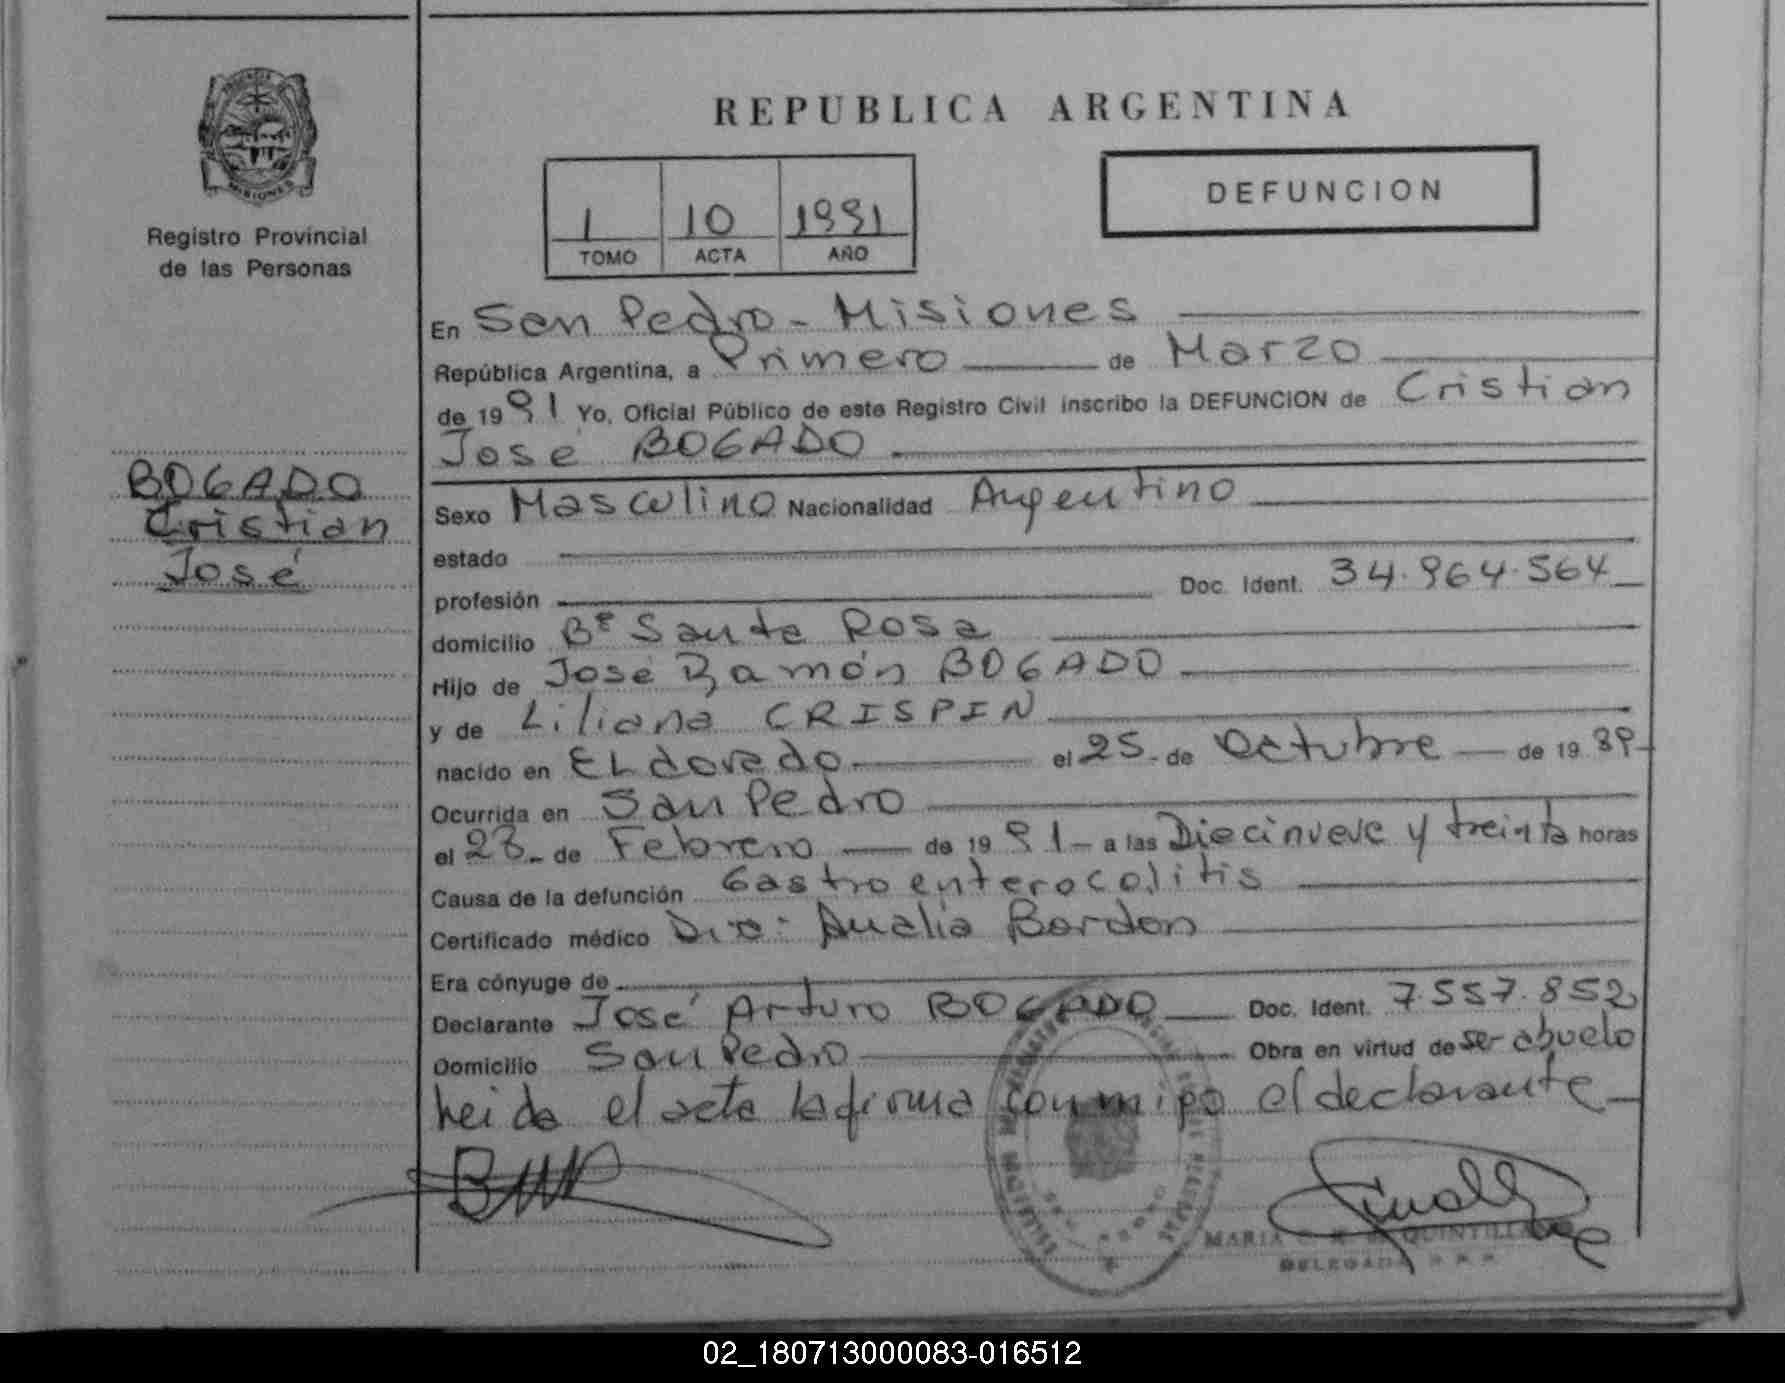 REPUBLICA ARGENTINA
MISIONES
Registro Provincial
de las Personas
1 10 1991
TOMO ACTA AÑO
DEFUNCION
En San Pedro - Misiones
República Argentina, a Primero de Marzo
de 1991 Yo, Oficial Público de este Registro Civil inscribo la DEFUNCION de Cristian
José BOGADO
BOGADO
Cristian
José
Sexo Masculino Nacionalidad Argentino
estado
profesión Doc. Ident. 34.964.564
domicilio Bº Santa Rosa
Hijo de José Ramón BOGADO
y de Liliana CRISPIN
nacido en ELdorado el 25 de Octubre de 1989
Ocurrida en San Pedro
el 28 de Febrero de 1991 a las Diecinueve y treinta horas
Causa de la defunción Gastroenterocolitis
Certificado médico Dra: Analia Bordon
Era cónyuge de
Declarante José Arturo BOGADO Doc. Ident. 7.557.852
Domicilio San Pedro Obra en virtud de ser abuelo
Leida el acta la firma conmigo el declarante
MARIA QUINTILLA
DELEGADA
02_180713000083-016512